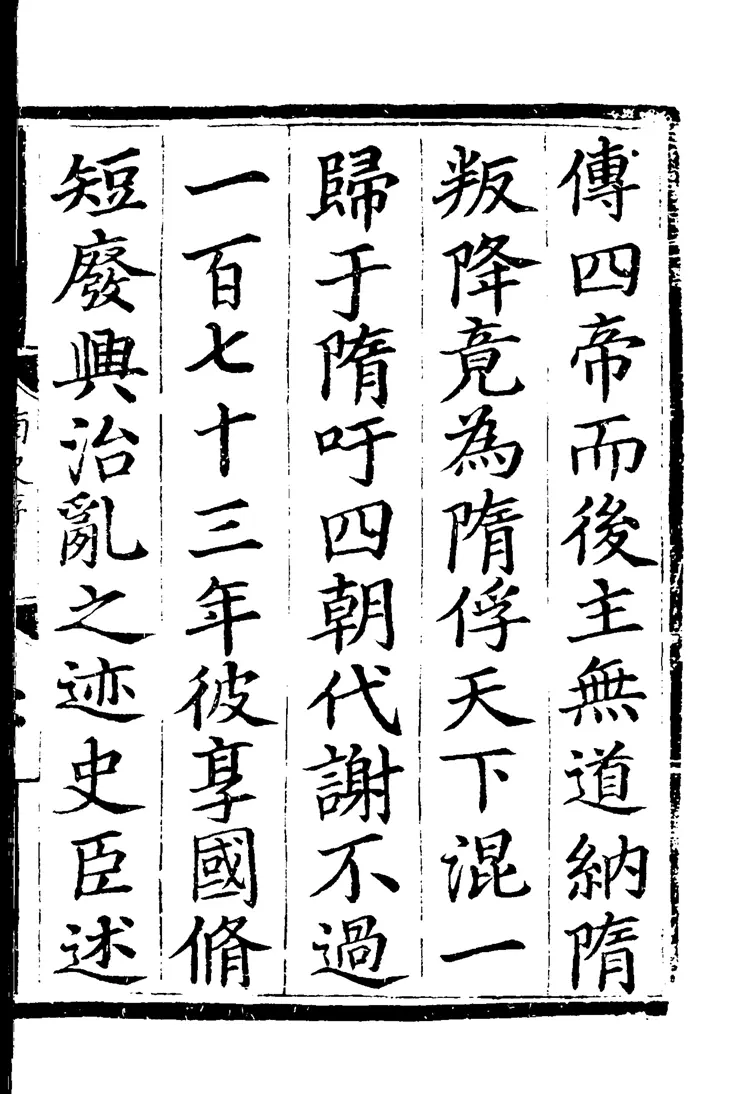 傳四帝而後主無道納隋
叛降竟為隋俘天下混一
歸于隋吁四朝代謝不過
一百七十三年彼享國脩
短廢興治亂之迹史臣述
南史序